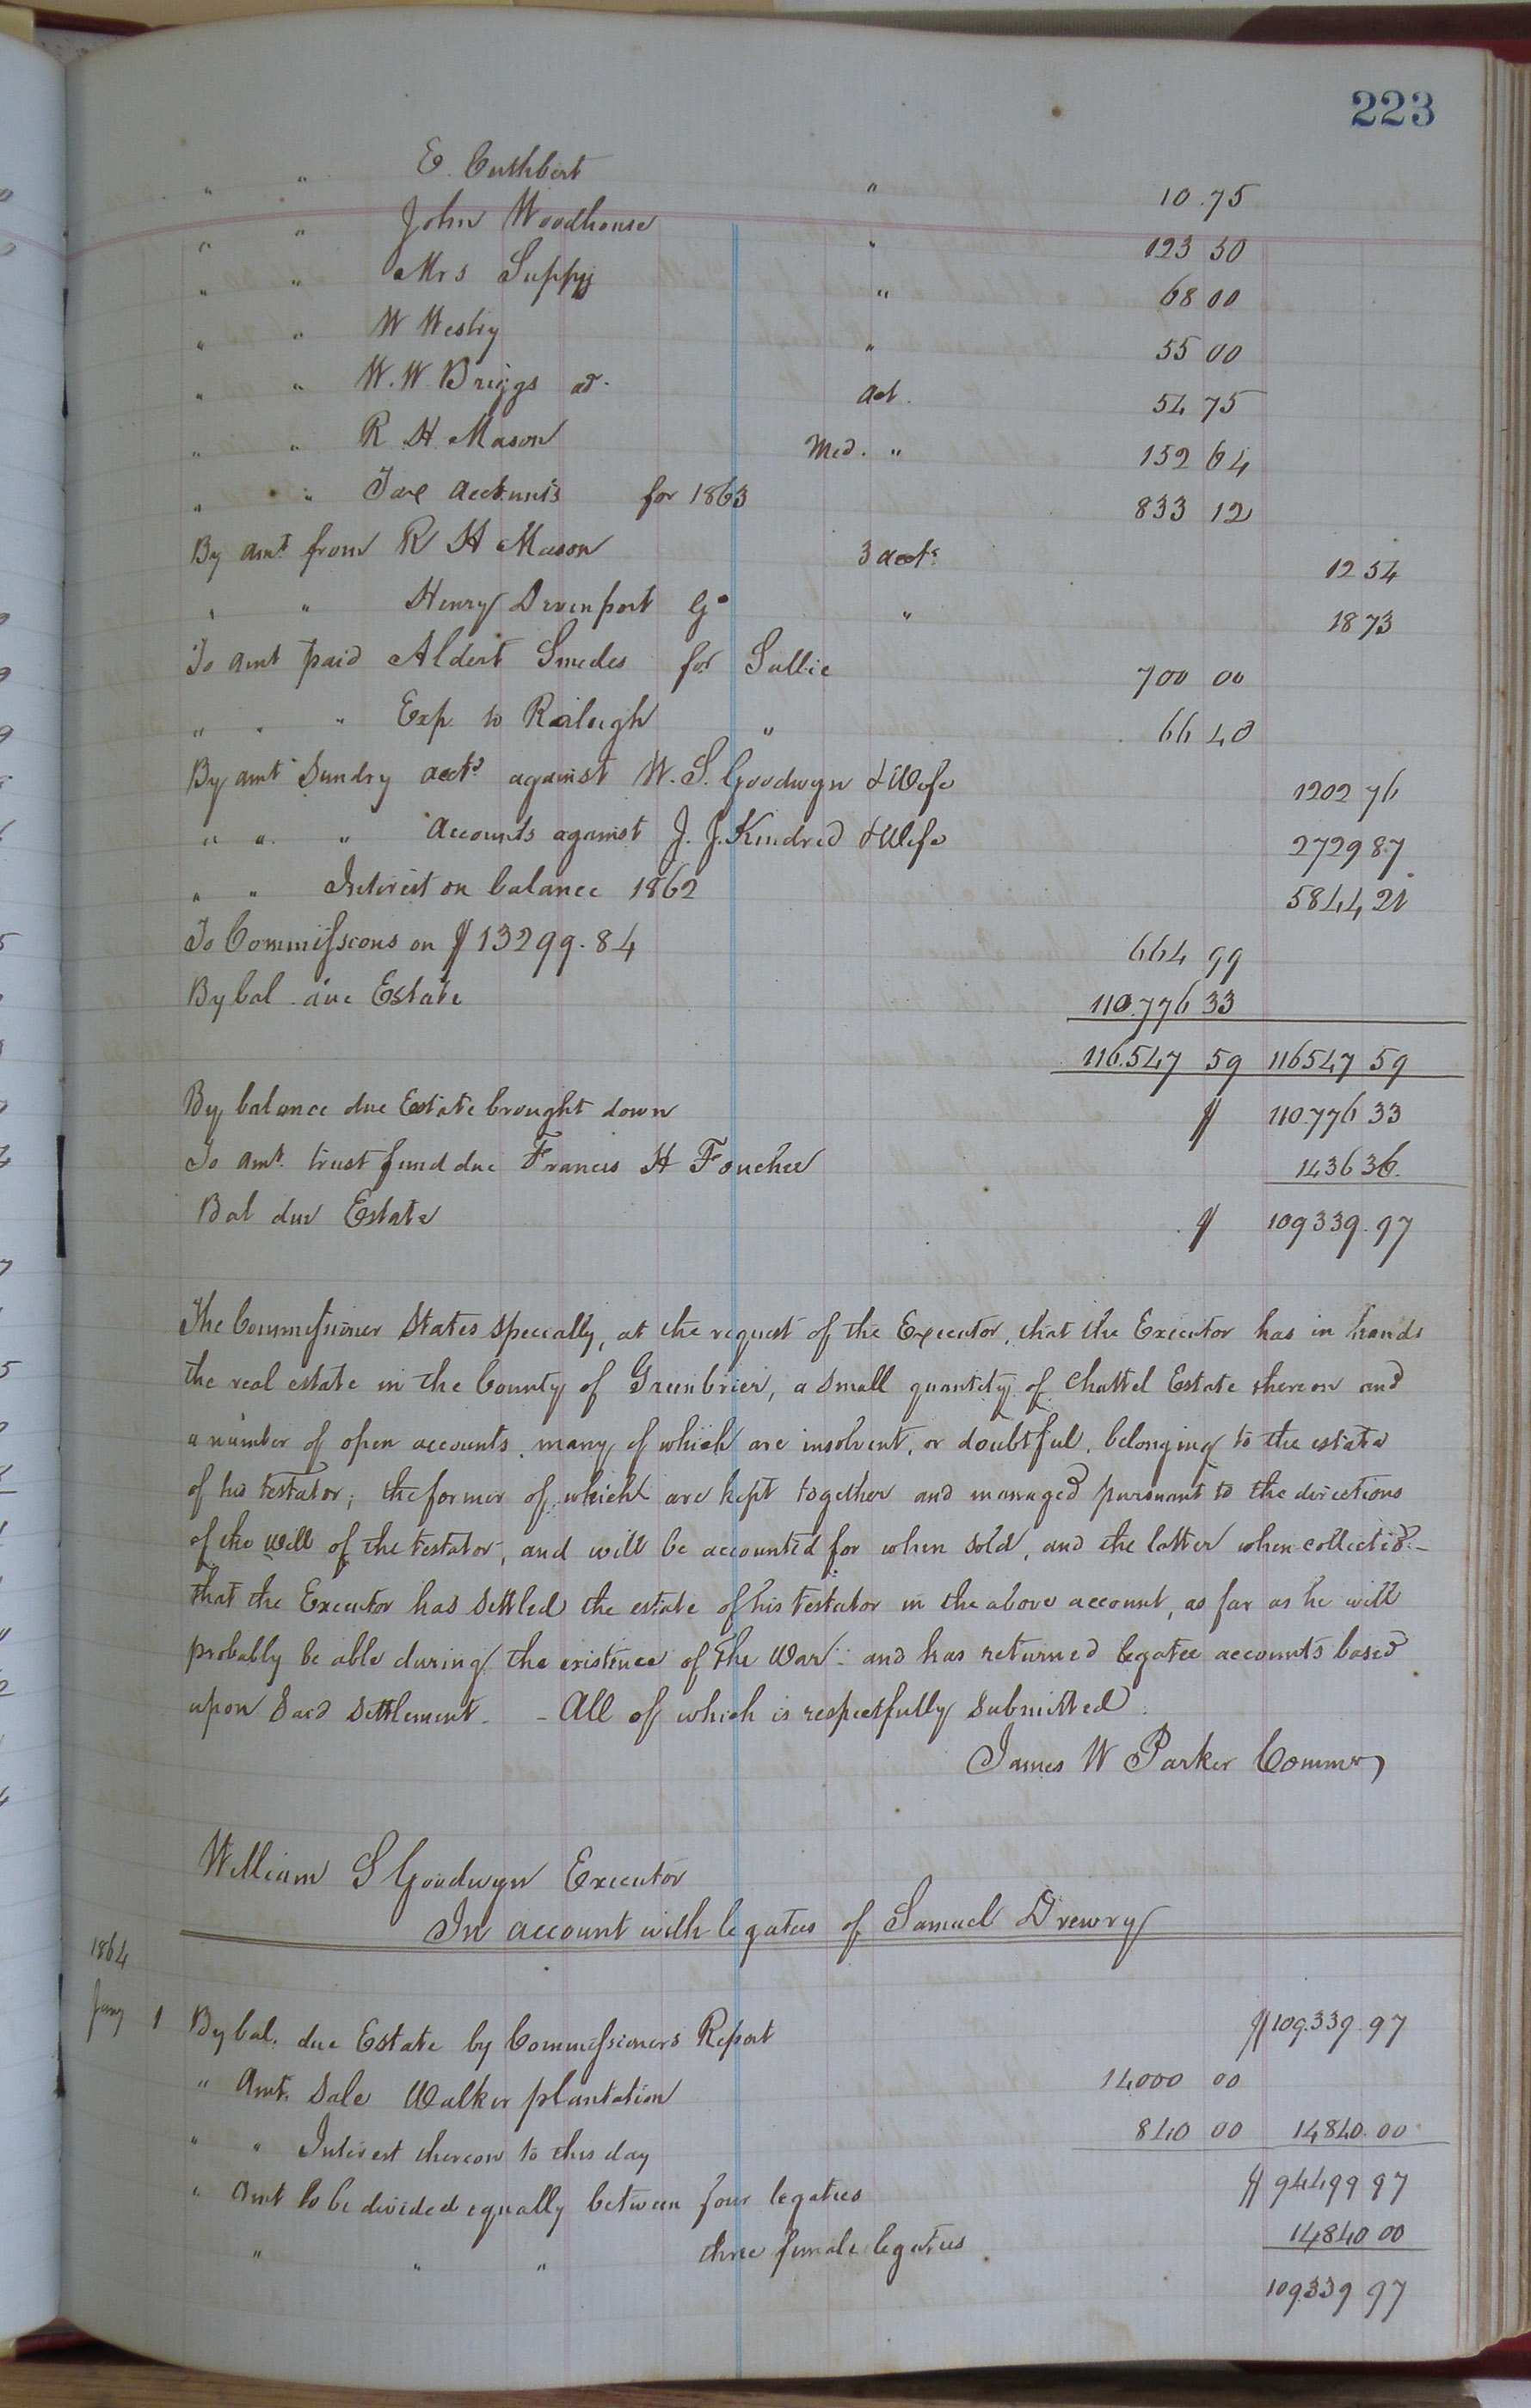 223
" " E. Cuthbert " 10.75
" " John Woodhouse " 123 50
" " Mrs Suppy " 68 00
" " W Westry " 55 00
" " W. W. Briggs ad. act. 54 75
" " R. H. Mason Med. " 152 64
" " Tax accounts for 1863 833 12
By amt from R H Mason 3 accts 12 54
" " Henry Devenport Go " 18 73
To amt paid Aldert Smedes for Sallie 700 00
" " " Exp. to Raileigh " 66 40
By amt Sundry accts against W. S. Goodwyn & Wife 1202 76
" " " Accounts against J. J. Kindred & Wife 2729 87
" " Interest on balance 1862 5844 21
To Commissions on $13299.84 664 99
By bal due Estate 110.776 33
116.547 59 116547 59
By balance due Estate brought down $ 110.776 33
To amt. trust fund due Francis H Fouchee 1436 36.
Bal due Estate $ 109339.97
The Commissioner States specially, at the request of the Executor, that the Executor has in hands
the real estate in the County of Greenbrier, a small quantity of Chattel Estate thereon and
a number of open accounts, many of which are insolvent, or doubtful, belonging to the estate
of his testator; the former of which are kept together and managed pursuant to the directions
of the will of the testator, and will be accounted for when sold, and the latter when collected. -
that the Executor has settled the estate of his testator in the above account, as far as he will
probably be able during the existence of the War: and has returned legatee accounts based
upon said settlement - - All of which is respectfully submitted
James W Parker Commr
William S Goodwyn Executor
In account with legatees of Samuel Drewry
1864
Jany 1 By bal. due Estate by Commissioners Report $109.339.97
" Amt. Sale Walker plantation 14000 00
" " Interest thereon to this day 840 00 14840.00
" Amt to be divided equally between four legatees $ 94499 97
" " " three female legatees 14840 00
109.339 97